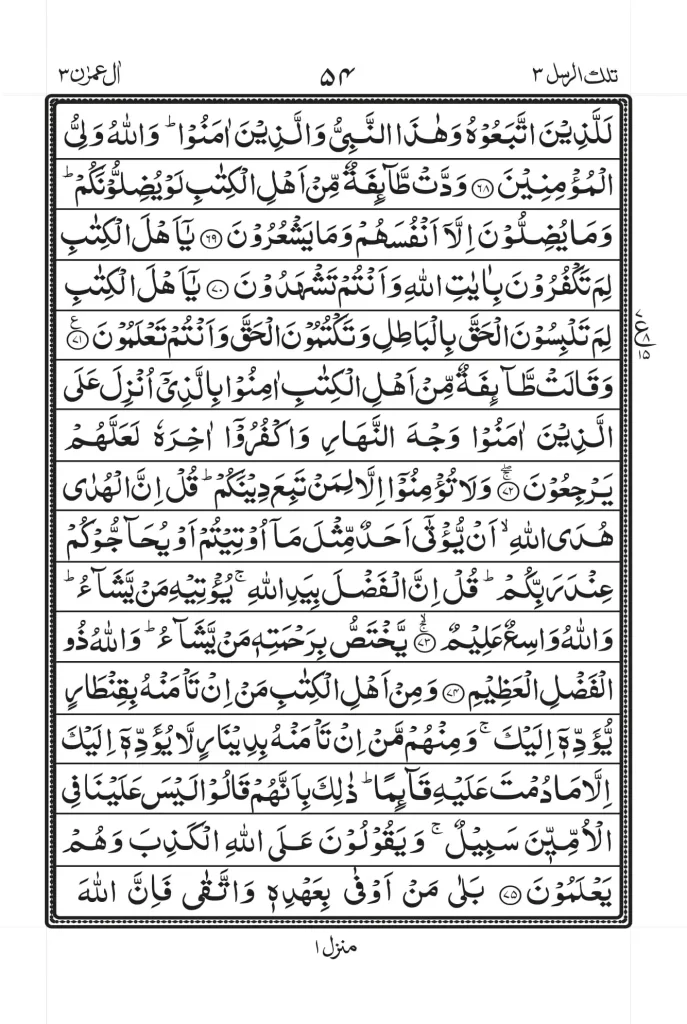 تلك الرسل ۳
۵۴
اٰل عمرٰن ۳
لَلَّذِيْنَ اتَّبَعُوْهُ وَهٰذَا النَّبِىُّ وَالَّذِيْنَ اٰمَنُوْا ؕ وَاللّٰهُ وَلِىُّ
الْمُؤْمِنِيْنَ ۶۸ وَدَّتْ طَّآئِفَةٌ مِّنْ اَهْلِ الْكِتٰبِ لَوْ يُضِلُّوْنَكُمْ ؕ
وَمَا يُضِلُّوْنَ اِلَّاۤ اَنْفُسَهُمْ وَمَا يَشْعُرُوْنَ ۶۹ يٰۤاَهْلَ الْكِتٰبِ
لِمَ تَكْفُرُوْنَ بِاٰيٰتِ اللّٰهِ وَاَنْتُمْ تَشْهَدُوْنَ ۷۰ يٰۤاَهْلَ الْكِتٰبِ
لِمَ تَلْبِسُوْنَ الْحَقَّ بِالْبَاطِلِ وَتَكْتُمُوْنَ الْحَقَّ وَاَنْتُمْ تَعْلَمُوْنَ ۷۱ ع
۷ ع ۷ ۱۵
وَقَالَتْ طَّآئِفَةٌ مِّنْ اَهْلِ الْكِتٰبِ اٰمِنُوْا بِالَّذِىْۤ اُنْزِلَ عَلَى
الَّذِيْنَ اٰمَنُوْا وَجْهَ النَّهَارِ وَاكْفُرُوْۤا اٰخِرَهٗ لَعَلَّهُمْ
يَرْجِعُوْنَ ۷۲ وَلَا تُؤْمِنُوْۤا اِلَّا لِمَنْ تَبِعَ دِيْنَكُمْ ؕ قُلْ اِنَّ الْهُدٰى
هُدَى اللّٰهِ ۙ اَنْ يُّؤْتٰٓى اَحَدٌ مِّثْلَ مَاۤ اُوْتِيْتُمْ اَوْ يُحَآجُّوْكُمْ
عِنْدَ رَبِّكُمْ ؕ قُلْ اِنَّ الْفَضْلَ بِيَدِ اللّٰهِ ۚ يُؤْتِيْهِ مَنْ يَّشَآءُ ؕ
وَاللّٰهُ وَاسِعٌ عَلِيْمٌ ۷۳ يَّخْتَصُّ بِرَحْمَتِهٖ مَنْ يَّشَآءُ ؕ وَاللّٰهُ ذُو
الْفَضْلِ الْعَظِيْمِ ۷۴ وَمِنْ اَهْلِ الْكِتٰبِ مَنْ اِنْ تَاْمَنْهُ بِقِنْطَارٍ
يُّؤَدِّهٖۤ اِلَيْكَ ۚ وَمِنْهُمْ مَّنْ اِنْ تَاْمَنْهُ بِدِيْنَارٍ لَّا يُؤَدِّهٖۤ اِلَيْكَ
اِلَّا مَا دُمْتَ عَلَيْهِ قَآئِمًا ؕ ذٰلِكَ بِاَنَّهُمْ قَالُوْا لَيْسَ عَلَيْنَا فِى
الْاُمِّيّٖنَ سَبِيْلٌ ۚ وَيَقُوْلُوْنَ عَلَى اللّٰهِ الْكَذِبَ وَهُمْ
يَعْلَمُوْنَ ۷۵ بَلٰى مَنْ اَوْفٰى بِعَهْدِهٖ وَاتَّقٰى فَاِنَّ اللّٰهَ
منزل ۱